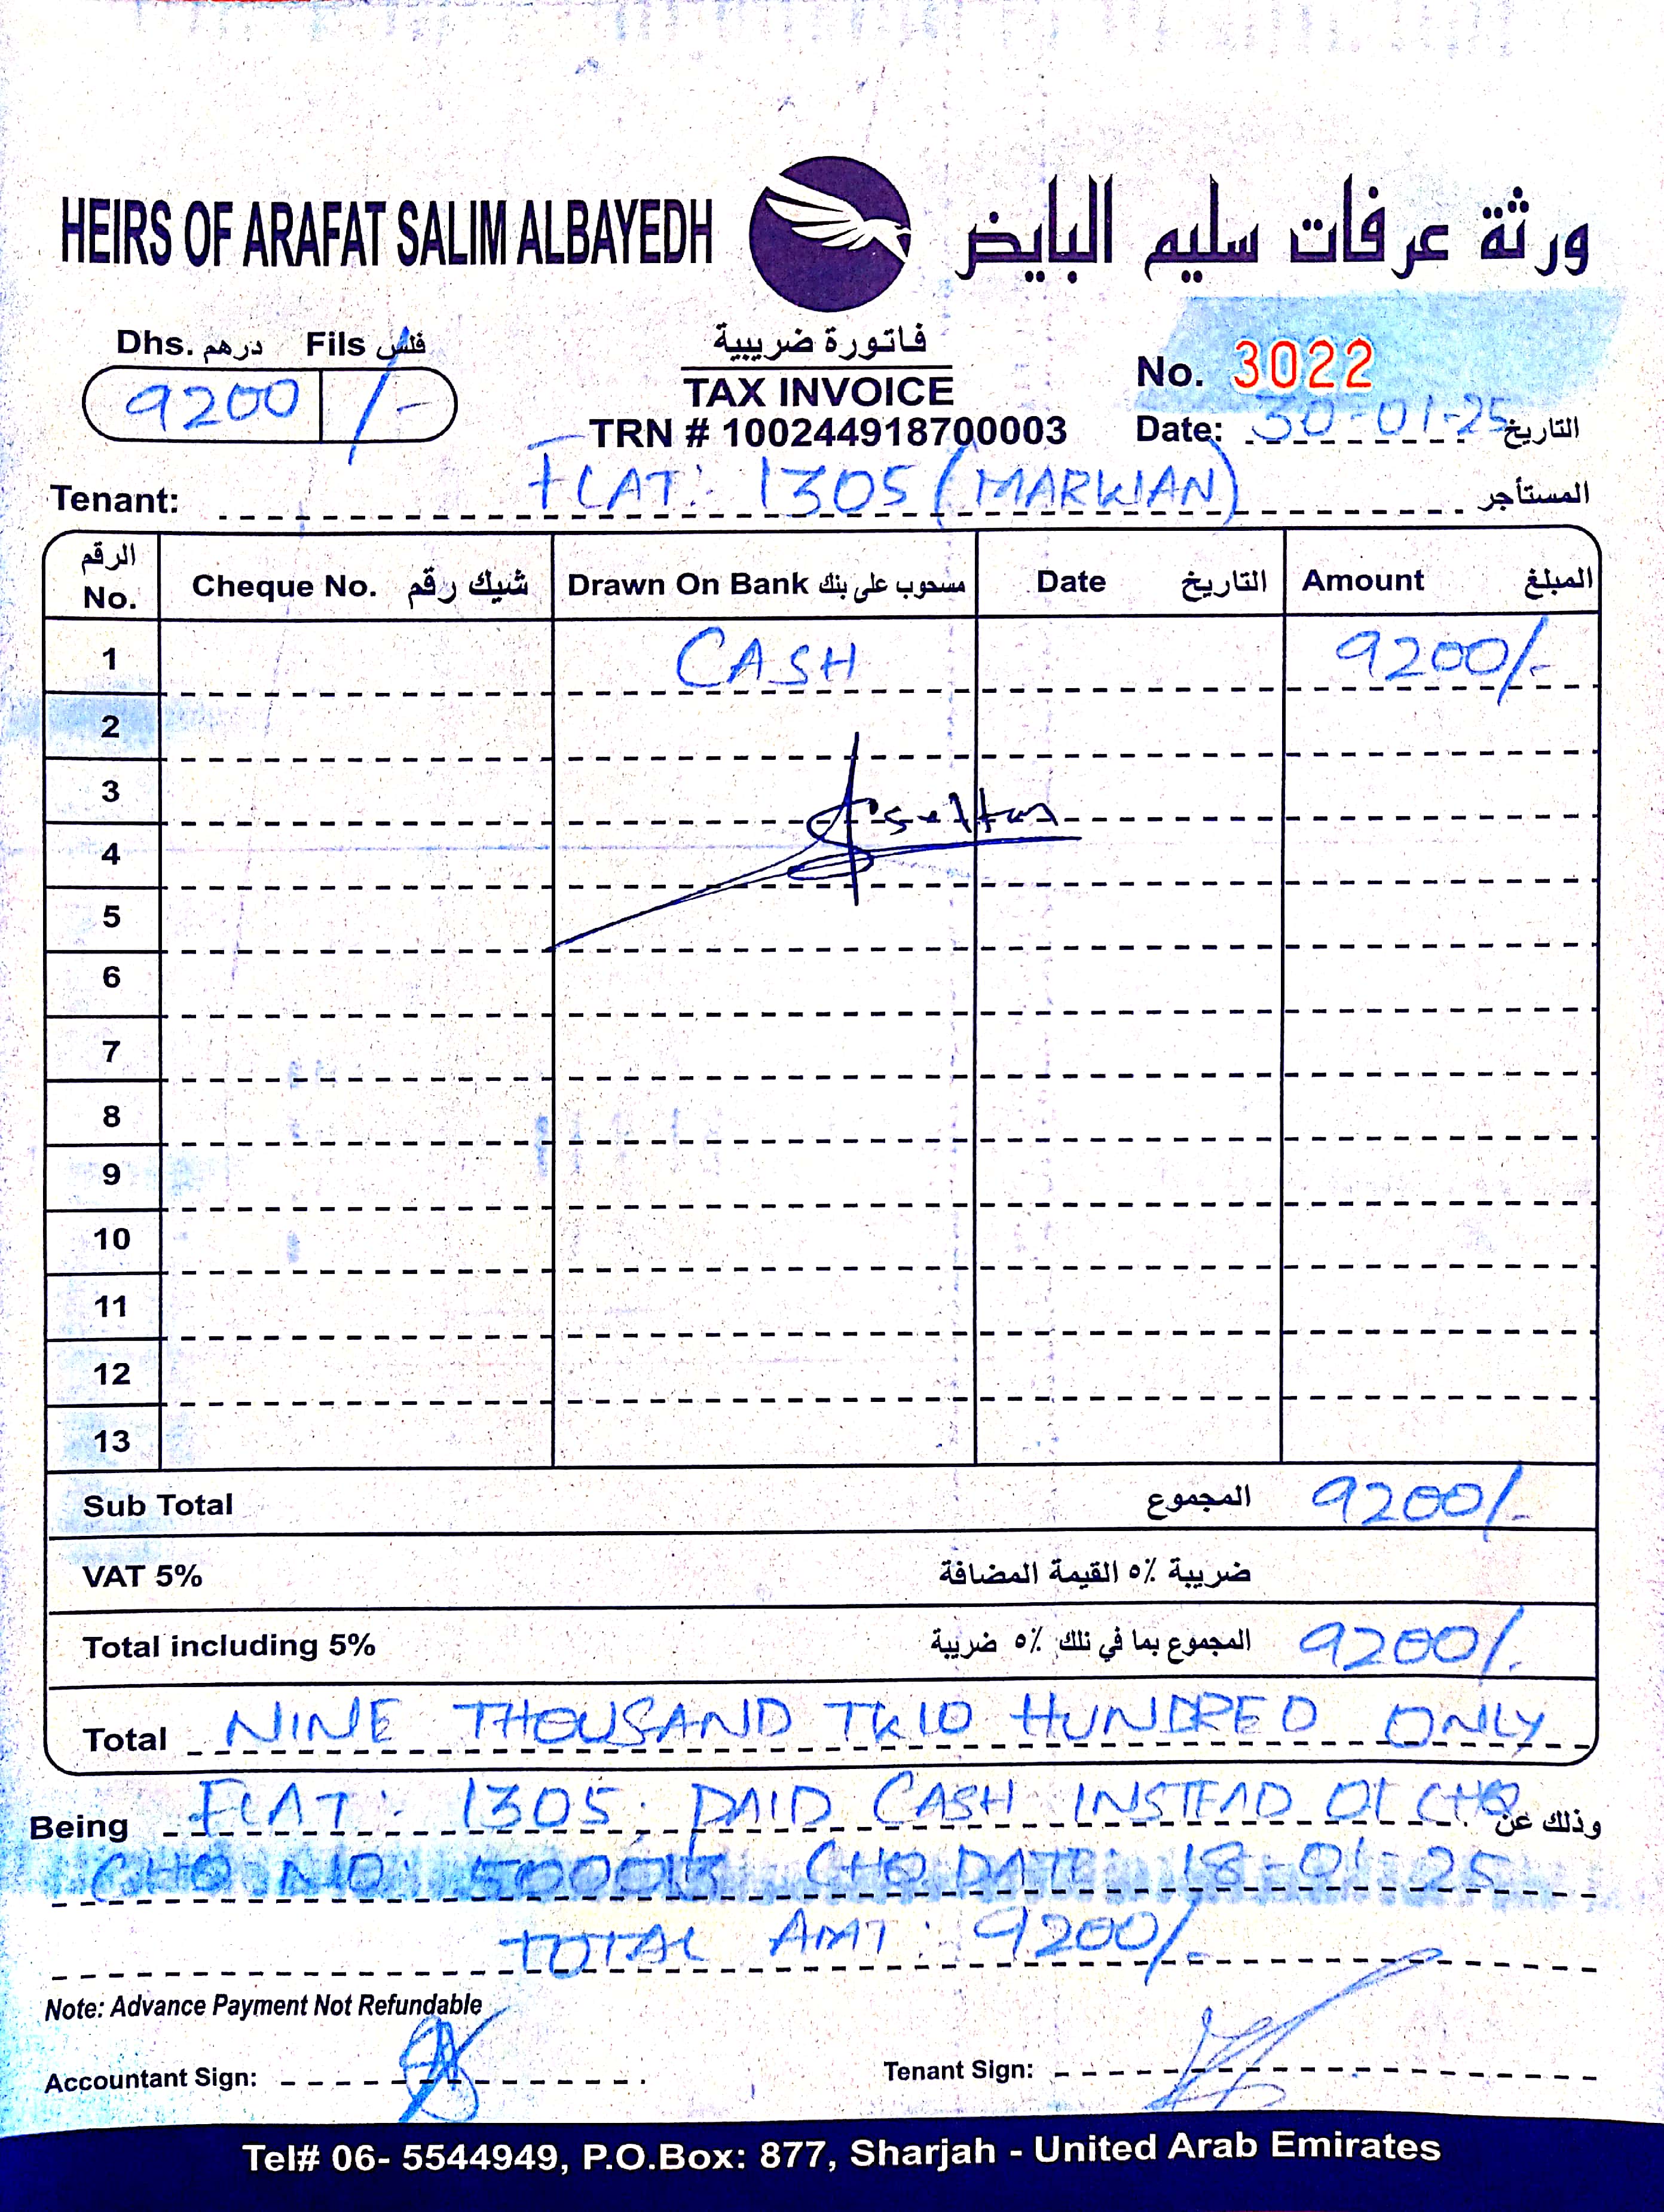 HEIRS OF ARAFAT SALIM ALBAYEDH ورثة عرفات سليم البايض
Dhs. درهم Fils فلس
9200 /-
فاتورة ضريبية
TAX INVOICE
TRN # 100244918700003
No. 3022
Date: 30-01-25 التاريخ
Tenant: FLAT: 1305 (MARWAN) المستأجر
الرقم No. Cheque No. شيك رقم Drawn On Bank مسحوب على بنك Date التاريخ Amount المبلغ
1 CASH 9200/-
2
3
4
5
6
7
8
9
10
11
12
13
Sub Total المجموع 9200/-
VAT 5% ضريبة ٥٪ القيمة المضافة
Total including 5% المجموع بما في ذلك ٥٪ ضريبة 9200/-
Total NINE THOUSAND TWO HUNDRED ONLY
Being FLAT: 1305: PAID CASH INSTEAD OF CHQ وذلك عن
CHQ NO: CHQ DATE: 18-01-25
TOTAL AMT: 9200/-
Note: Advance Payment Not Refundable
Accountant Sign: Tenant Sign:
Tel# 06- 5544949, P.O.Box: 877, Sharjah - United Arab Emirates